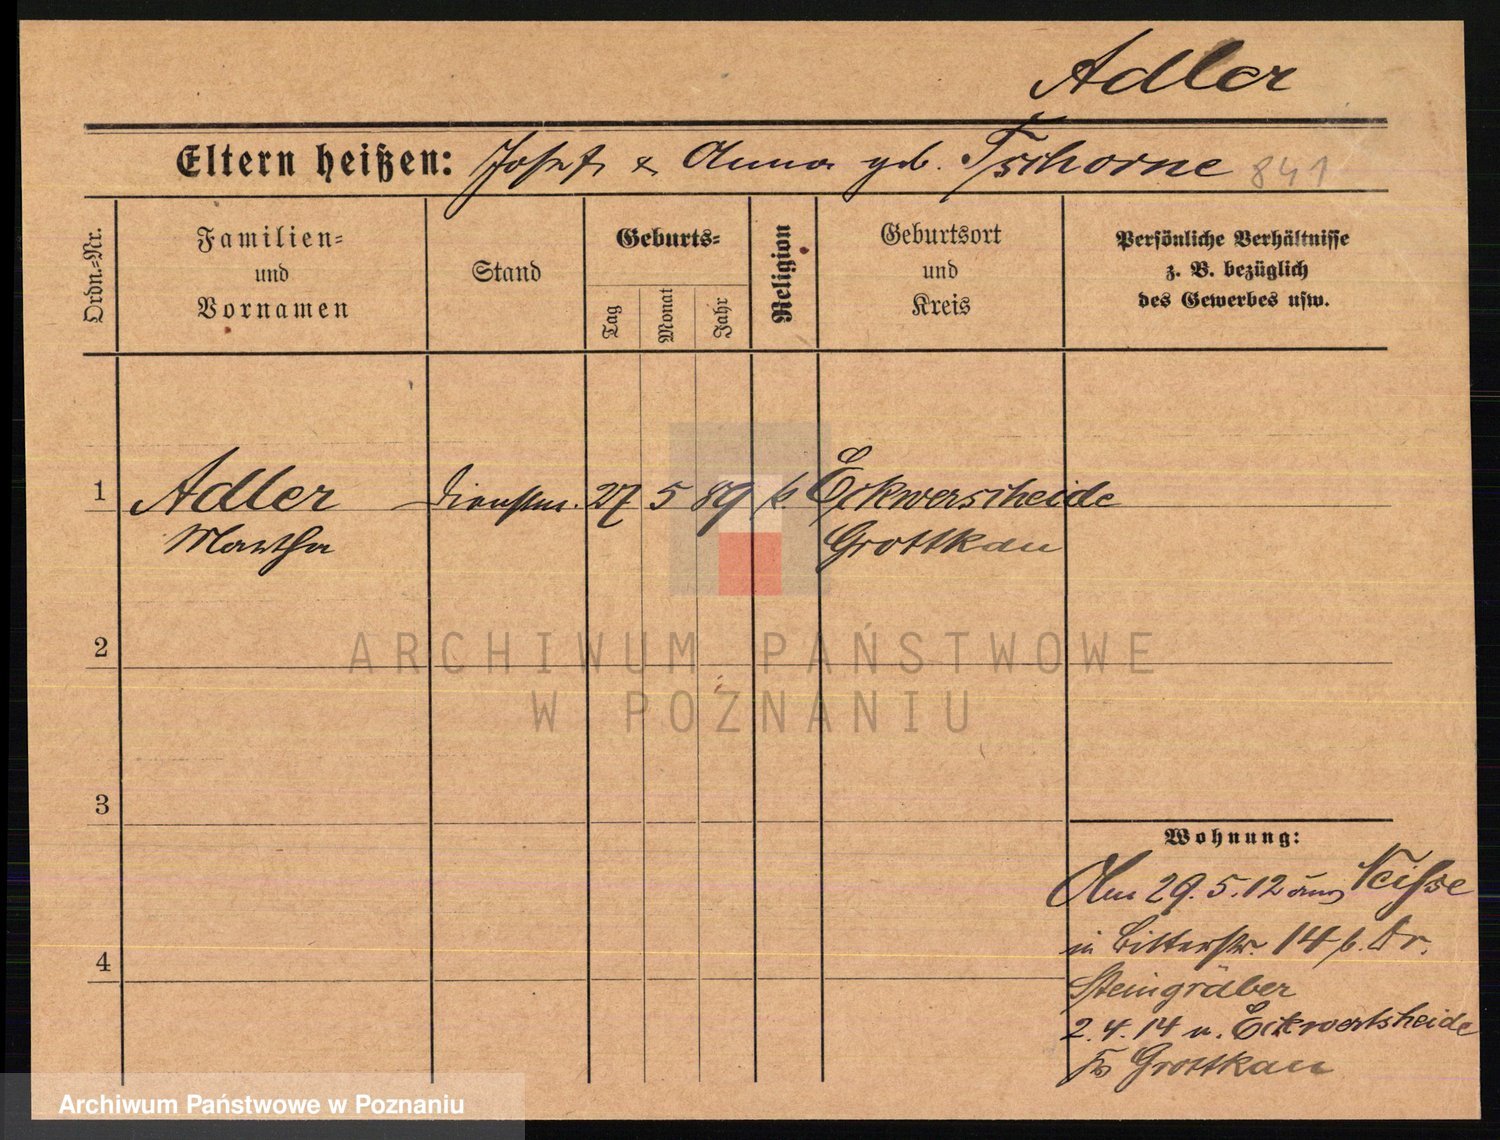 Adler
Eltern heißen: Josef & Anna geb. Tschorne 841
Ordn.-Nr.
Familien- und Vornamen
Stand
Geburts-
Tag
Monat
Jahr
Religion
Geburtsort und Kreis
Persönliche Verhältnisse
z. B. bezüglich
des Gewerbes usw.
1 Adler Dienstm. 27 5 89 k. Eckwerscheide
Martha Grottkau
2
ARCHIWUM PAŃSTWOWE
W POZNANIU
3
Wohnung:
Am 29.5.12 aus Neisse
in Ritterstr. 14 b. Dr.
4
Steingräber
2.4.14 n. Eckwertsheide
Kr. Grottkau
Archiwum Państwowe w Poznaniu